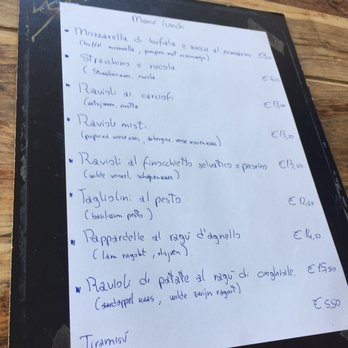 Menu lunch
Mozzarella di bufala e zucca al rosmarino
(buffel mozzarella, pompoen met rozemarijn)
Stracchino e rucola
(Stracchino kaas, rucola)
Ravioli ai carciofi €13,00
(artisjokken, ricotta)
Ravioli misti €13,00
Ravioli al finocchietto selvatico e pecorino €13,00
(wilde venkel, schapenkaas)
Tagliolini al pesto €12,50
(basilicum pesto)
Pappardelle al ragù d'agnello €14,50
(lam ragout, olijven)
Ravioli di patate al ragù di cinghiale €15,00
(aardappel kaas, wilde zwijn ragout)
€5,50
Tiramisú